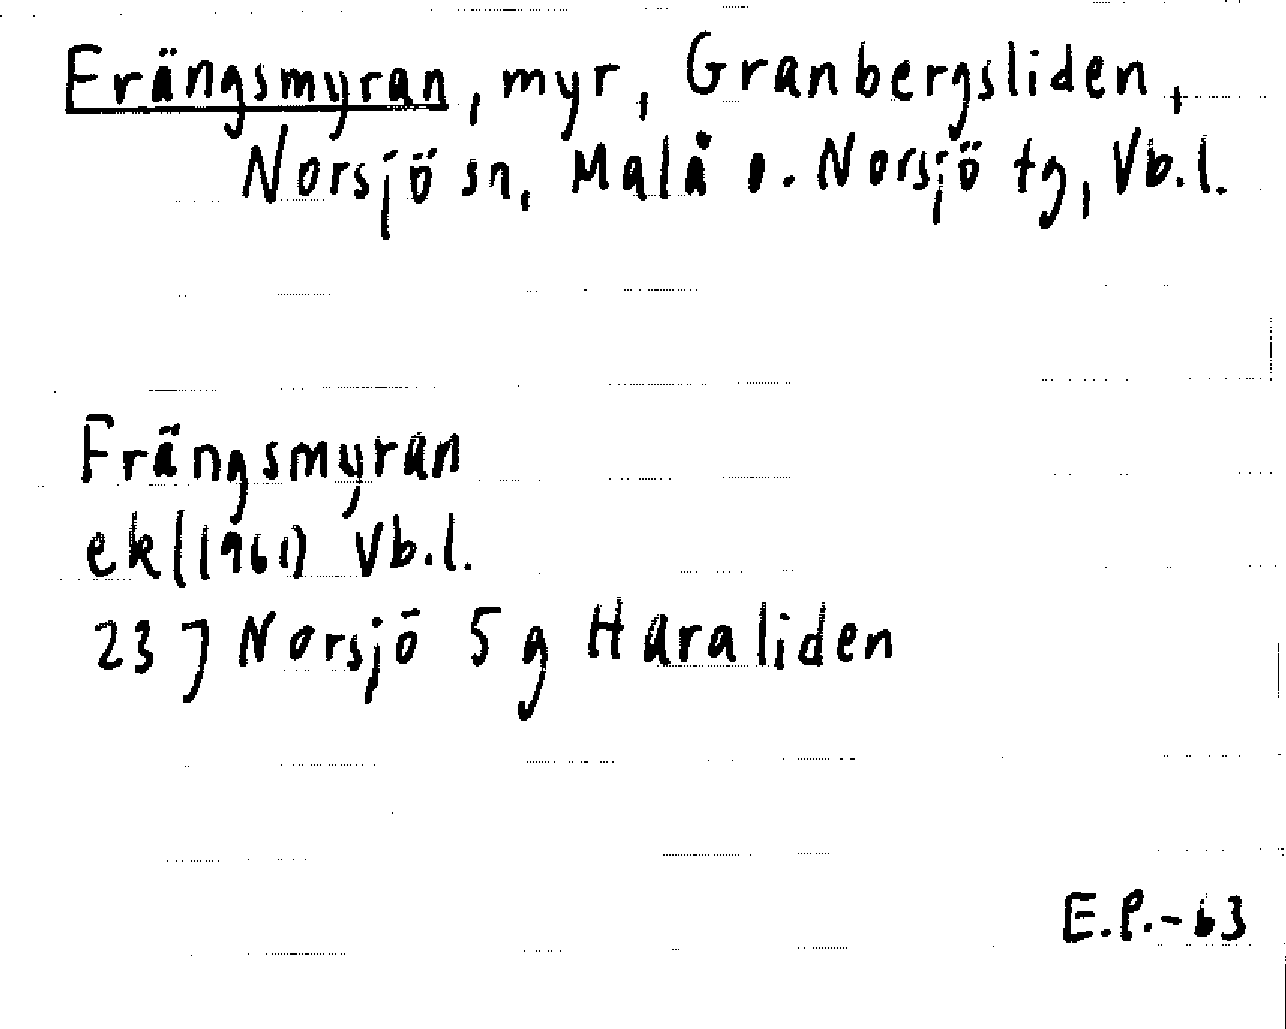 Frängsmyran, myr, Granbergsliden,
Norsjö sn, Malå o. Norsjö tg, Vb.l.
Frängsmyran
ek (1961) Vb.l.
23 J Norsjö 5 g Haraliden
E.P.-63